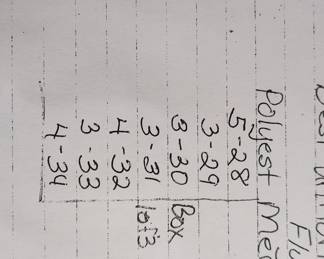 Polyest Me
5-28
3-29
3-30 Box
3-31 1of3
4-32
3-33
4-34